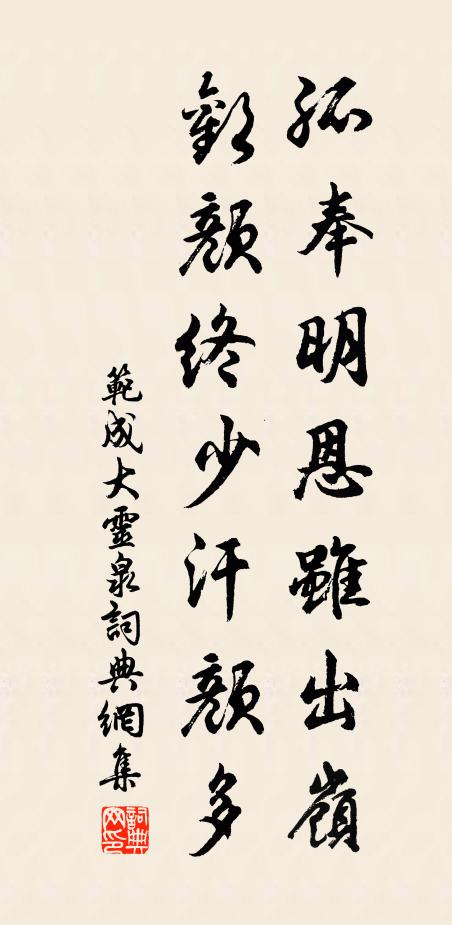 孤奉明恩雖出嶺
歡顏終少汗顏多
範成大靈泉詞典網集
詞典網印